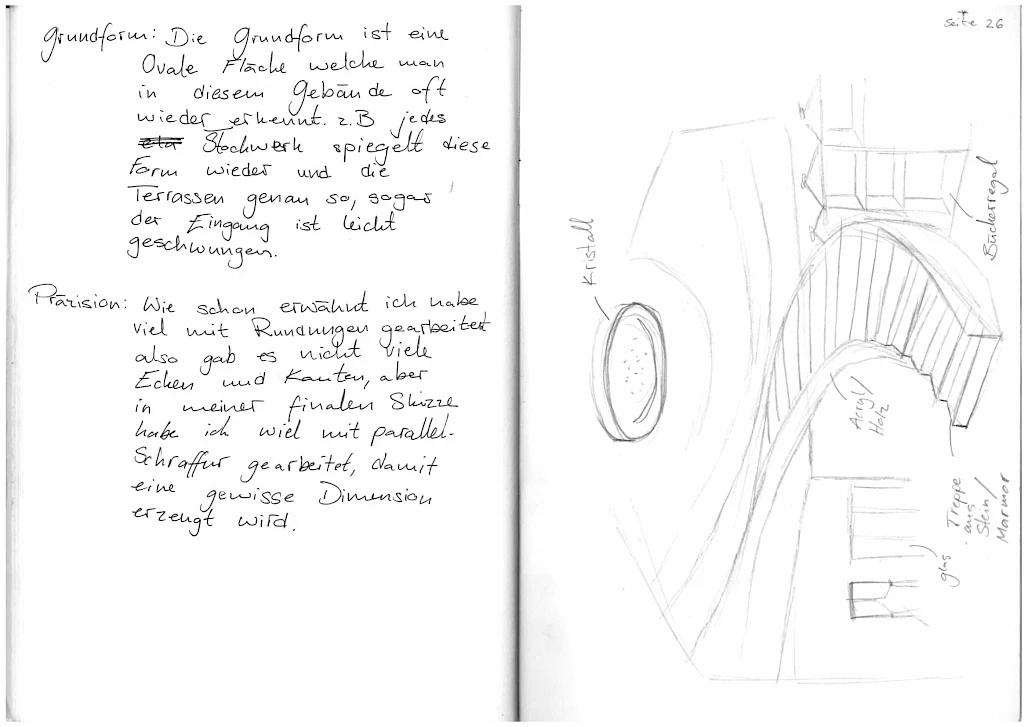 Grundform: Die Grundform ist eine
Ovale Fläche welche man
in diesem Gebäude oft
wieder erkennt. z.B jedes
Stockwerk spiegelt diese
Form wieder und die
Terrassen genau so, sogar
der Eingang ist leicht
geschwungen.
Präzision: Wie schon erwähnt ich habe
viel mit Rundungen gearbeitet
also gab es nicht viele
Ecken und Kanten, aber
in meiner finalen Skizze
habe ich wiel mit parallel-
Schraffur gearbeitet, damit
eine gewisse Dimension
erzeugt wird.
Seite 26
Kristall
Bücherregal
Acryl/
Holz
Treppe
aus
Stein/
Marmor
glas